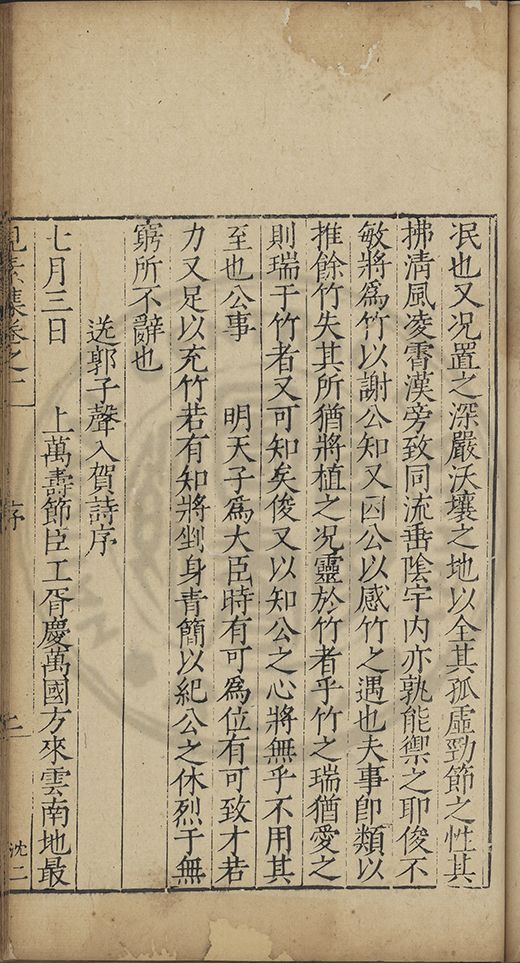 泯也又况置之深嚴沃壤之地以全其孤虛勁節之性其
拂淸風凌霄漢旁致同流垂陰宇内亦孰能禦之耶俊不
敏將爲竹以謝公知又因公以感竹之遇也夫事卽類以
推餘竹失其所猶將植之况靈於竹者乎竹之瑞猶愛之
則瑞于竹者又可知矣俊又以知公之心將無乎不用其
至也公事　　明天子爲大臣時有可爲位有可致才若
力又足以充竹若有知將剉身青簡以紀公之休烈于無
窮所不辭也
送郭子聲入賀詩序
七月三日　　上萬壽節臣工胥慶萬國方來雲南地最
見素集卷之二　序　二　沈二